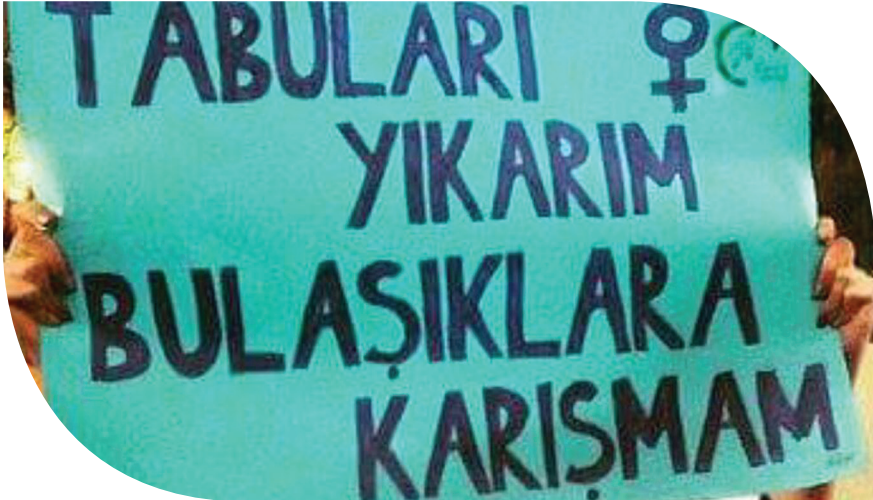 TABULARI ♀
YIKARIM
BULAŞIKLARA
KARIŞMAM